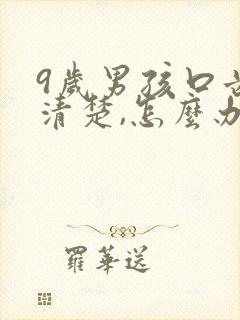 9歲男孩口
清楚,怎麼
羅華送